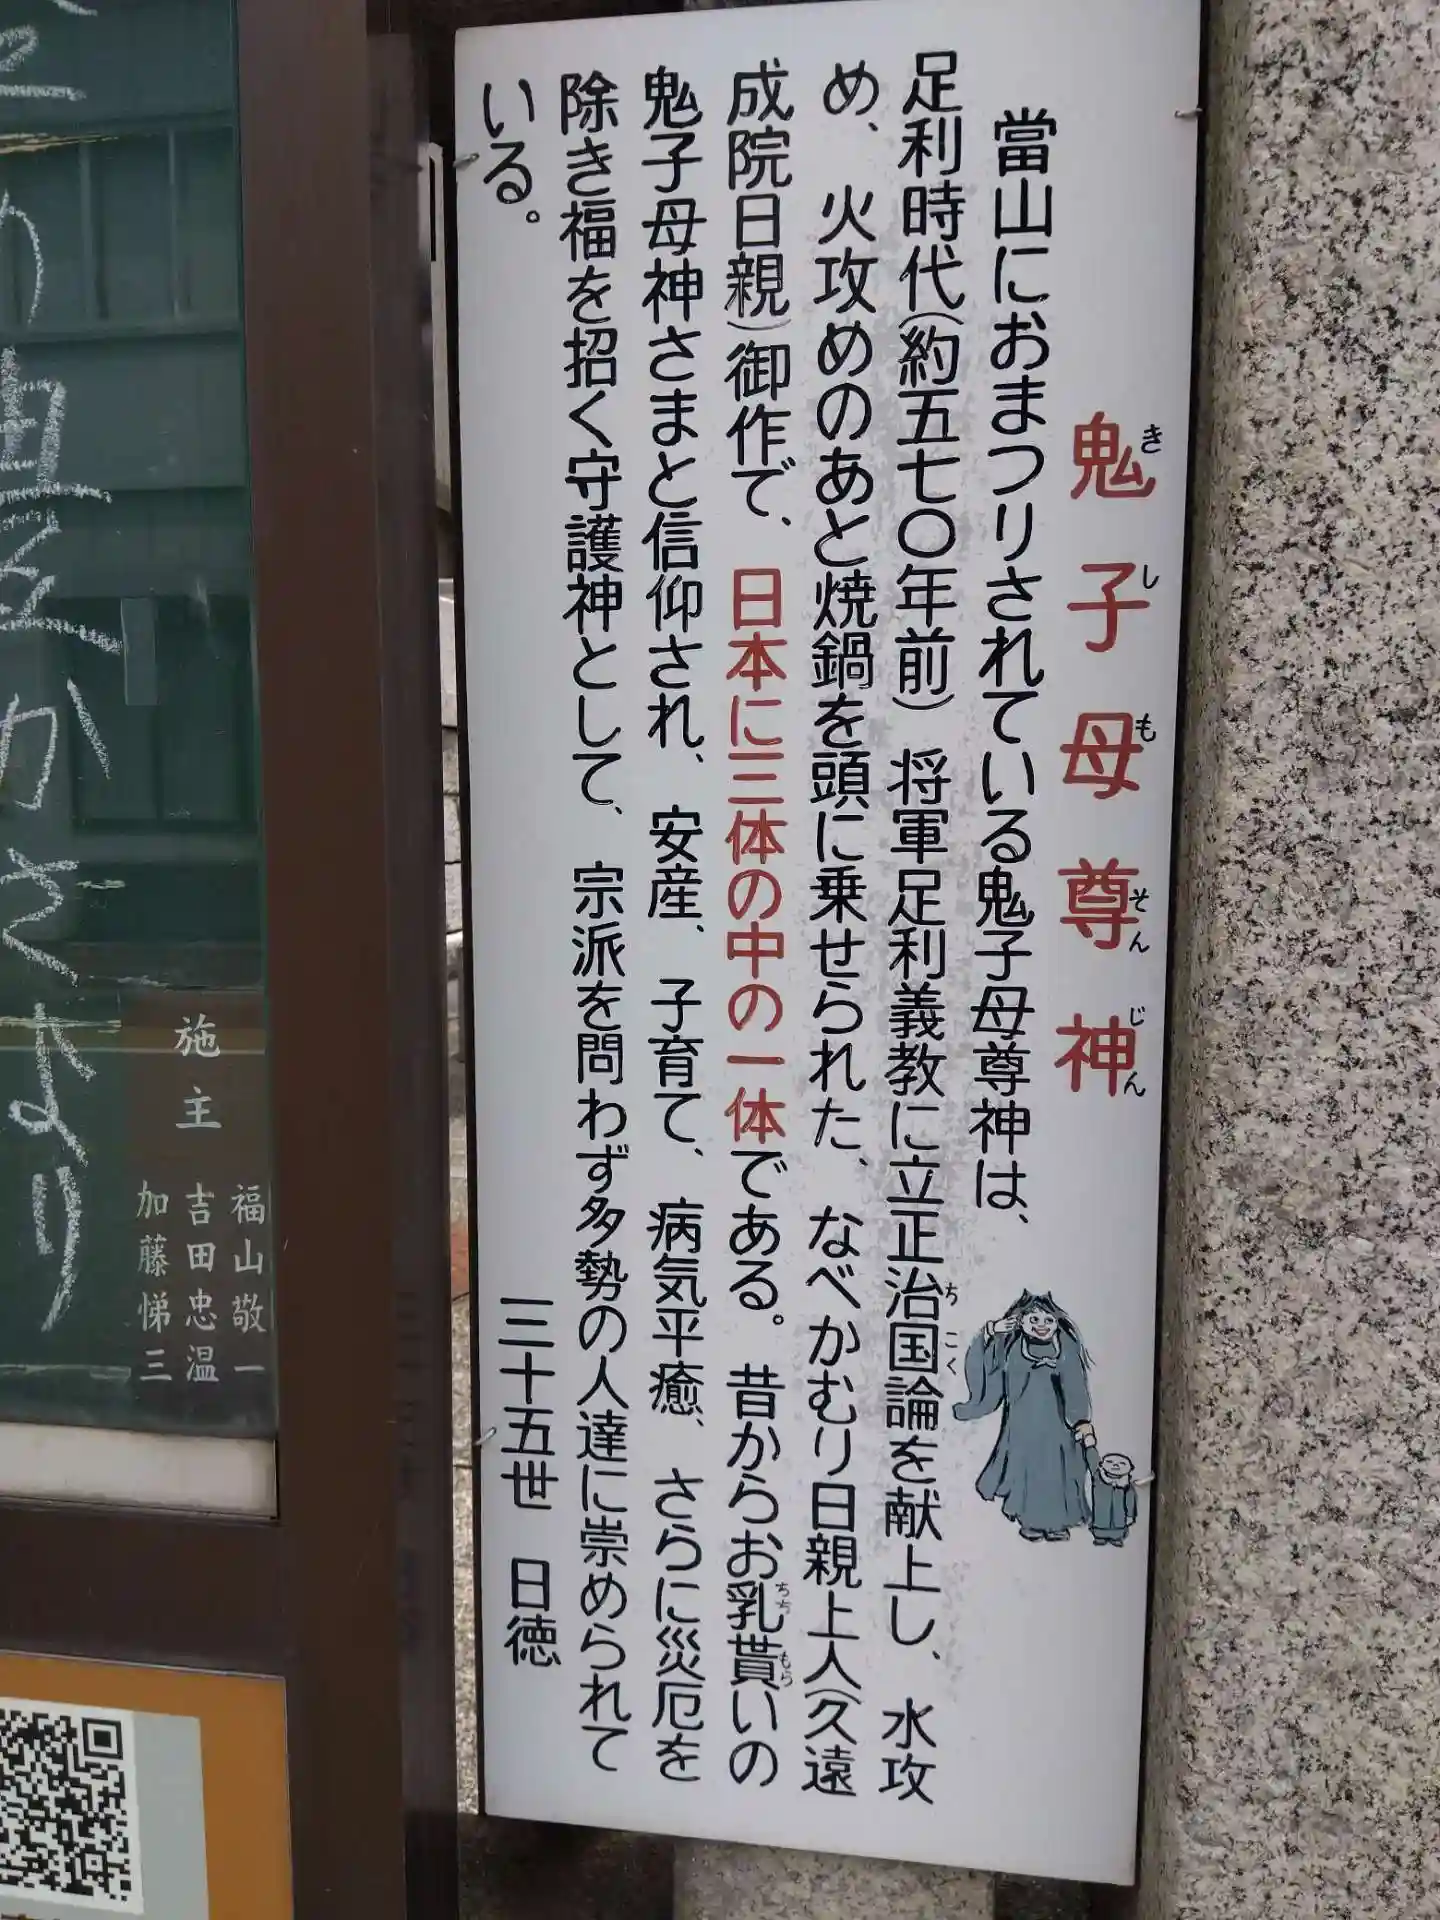 鬼子母尊神
きしもそんじん
當山におまつりされている鬼子母尊神は、
足利時代(約五七〇年前)将軍足利義教に立正治国論を献上し、水攻
ちこく
め、火攻めのあと焼鍋を頭に乗せられた、なべかむり日親上人(久遠
成院日親)御作で、日本に三体の中の一体である。昔からお乳貰いの
ちちもら
鬼子母神さまと信仰され、安産、子育て、病気平癒、さらに災厄を
除き福を招く守護神として、宗派を問わず多勢の人達に崇められて
いる。
三十五世 日徳
施主
福山敬一
吉田忠温
加藤悌三